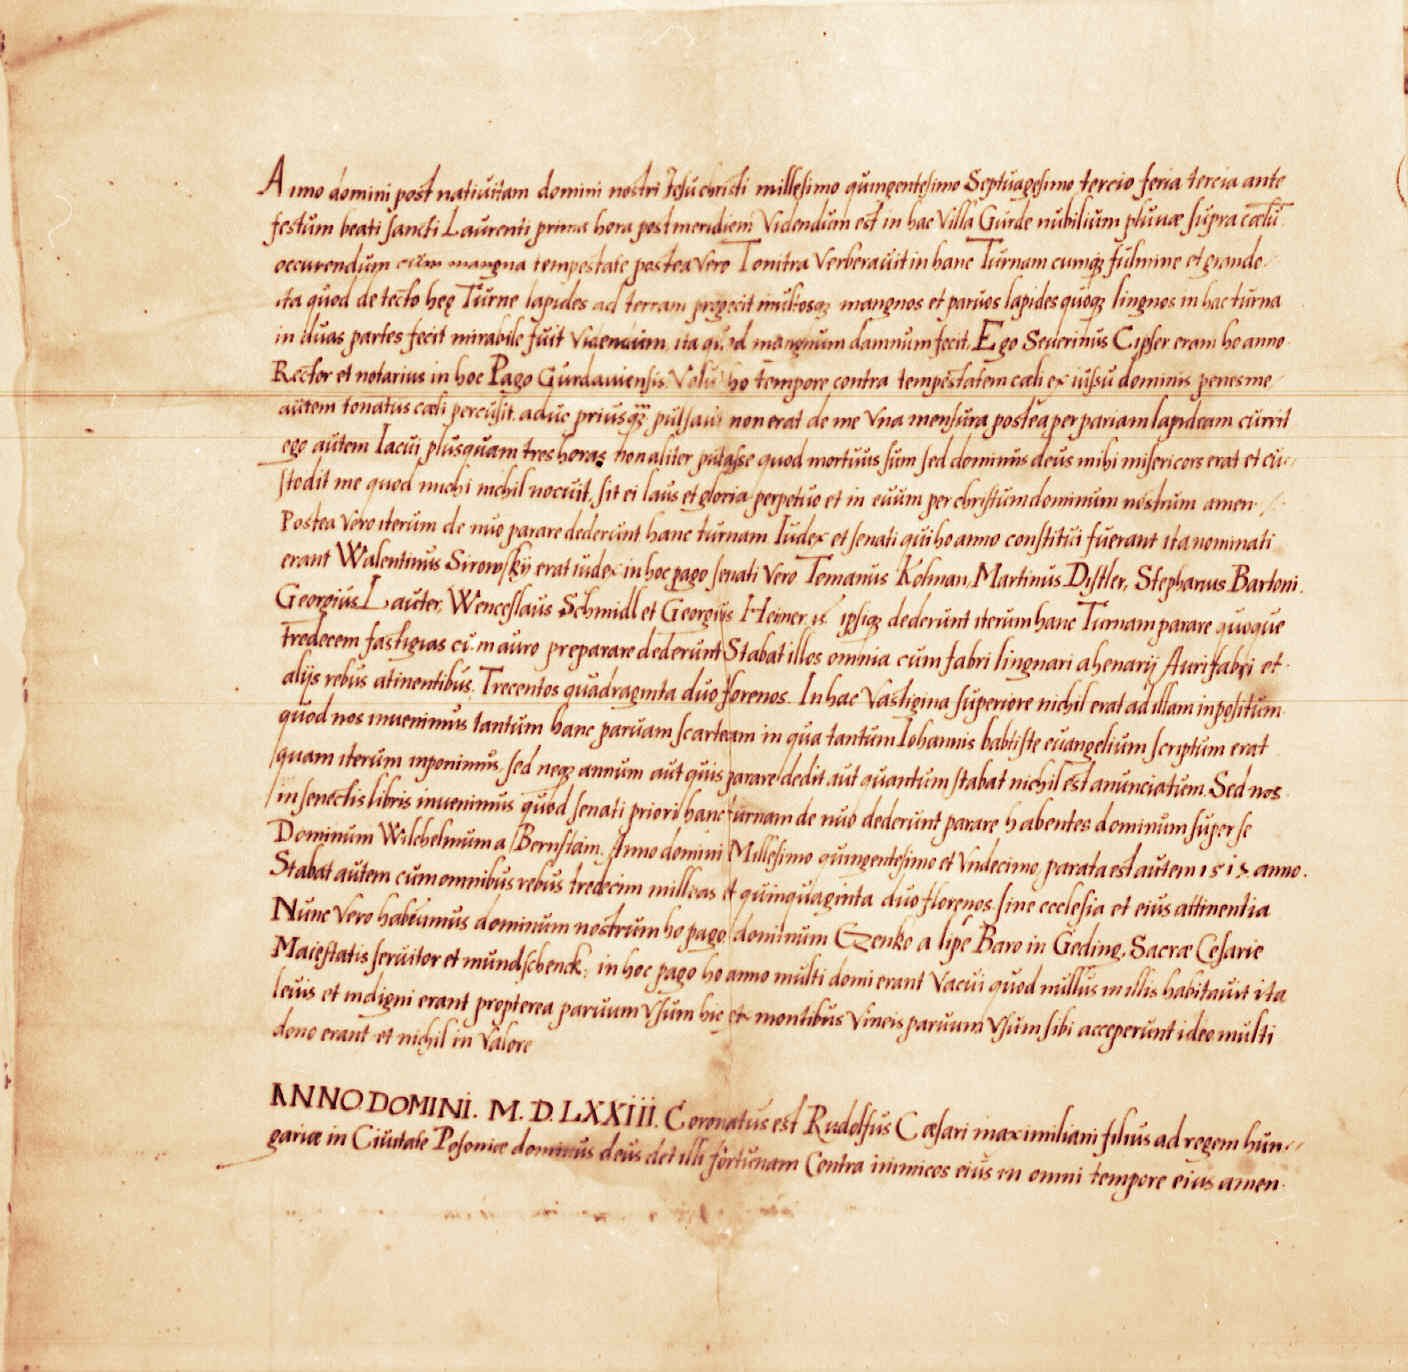 Anno domini post natiuitam domini nostri Jesu christi millesimo quingentesimo Septuagesimo tercio feria tercia ante
festum beati sancti Laurenti prima hora post meridiem Videndum est in hac Villa Gurde nubilium pluuiæ supra cælū
occurendum cum mangna tempestate postea vero Tonitra Verberauit in hanc Turnam cumqȝ fulmine et grande
ita quod de tecto heę Turne lapides ad terram progecit multosqȝ mangnos et paruos lapides quoqȝ lingnos in hac turna
in duas partes fecit mirabile fuit Videndum, ita quod mangnum damnum fecit. Ego Seuerinus Cipser eram ho anno
Rector et notarius in hoc Pago Gurdauiensis. Volui ho tempore contra tempestatem cæli ex iussu dominis penes me
autem tonatus cæli percusit. aduc priusqȝ pulsaui non erat de me Vna mensura postea per pariam lapideam currit
ego autem Iacui plusquam tres horas non aliter putasse quod mortuus sum sed dominus deus mihi misericors erat et cu-
stodit me quod michi nichil nocuit, sit ei laus et gloria perpetuo et in euum per christum dominum nostrum amen
Postea Vero iterum de nuo parare dederunt hanc turnam Iudex et senati qui ho anno constitui fuerant ita nominati
erant Walentinus Sirowskÿ erat iudex in hoc pago senati Vero Tomanus Kolman, Martinus Distler, Stephanus Bartoni.
Georgius Lauter, Wenceslaus Schmidl et Georgius Heiner is ipsiqȝ dederunt iterum hanc Turnam parare quoque
tredecem fastigias cum auro preparare dederunt Stabat illos omnia cum fabri lingnari ahenarÿ Aurifabri et
alÿs rebus atinentibus. Trecentos quadraginta duo florenos. In hac Vastigina superiore nichil erat ad illam inpositum
quod nos inuenimus tantum hanc paruam scarteam in qua tantum Iohannis babtiste euangelium scriptum erat
quam iterum inponimus, sed neqȝ annum aut quis parare dedit aut quantum stabat nichil est anunciatum. Sed nos
in senectis libris inuenimus quod senati priori hanc turnam de nuo dederunt parare habentes dominum super se
Dominum Wilchelmum a Bernstain. Anno domini Millesimo quingentesimo et Vndecimo, parata est autem anno.
Stabat autem cum omnibus rebus tredecim milleas et quinquaginta duo florenos sine ecclesia et eius attinentia
Nunc Vero habeamus dominum nostrum ho pago dominum Czenko a lipe Baro in Geding, Sacræ Cesarie
Maiestatis seruitor et mundschenck, in hoc pago ho anno multi domi erant Vacui quod nullus in illis habitauit ita
leuis et indigni erant propterea paruum Vsum hic ex montibus Vineis paruum Vsum sibi acceperunt ideo multi
dono erant et nichil in Valore
ANNO DOMINI. M.D.LXXIII. Coronatus est Rudolfus Cæsari maximiliani filius ad regem hun-
gariæ in Ciuitate Posoniæ dominus deus det illi fortunam Contra inimicos eius in omni tempore eius amen